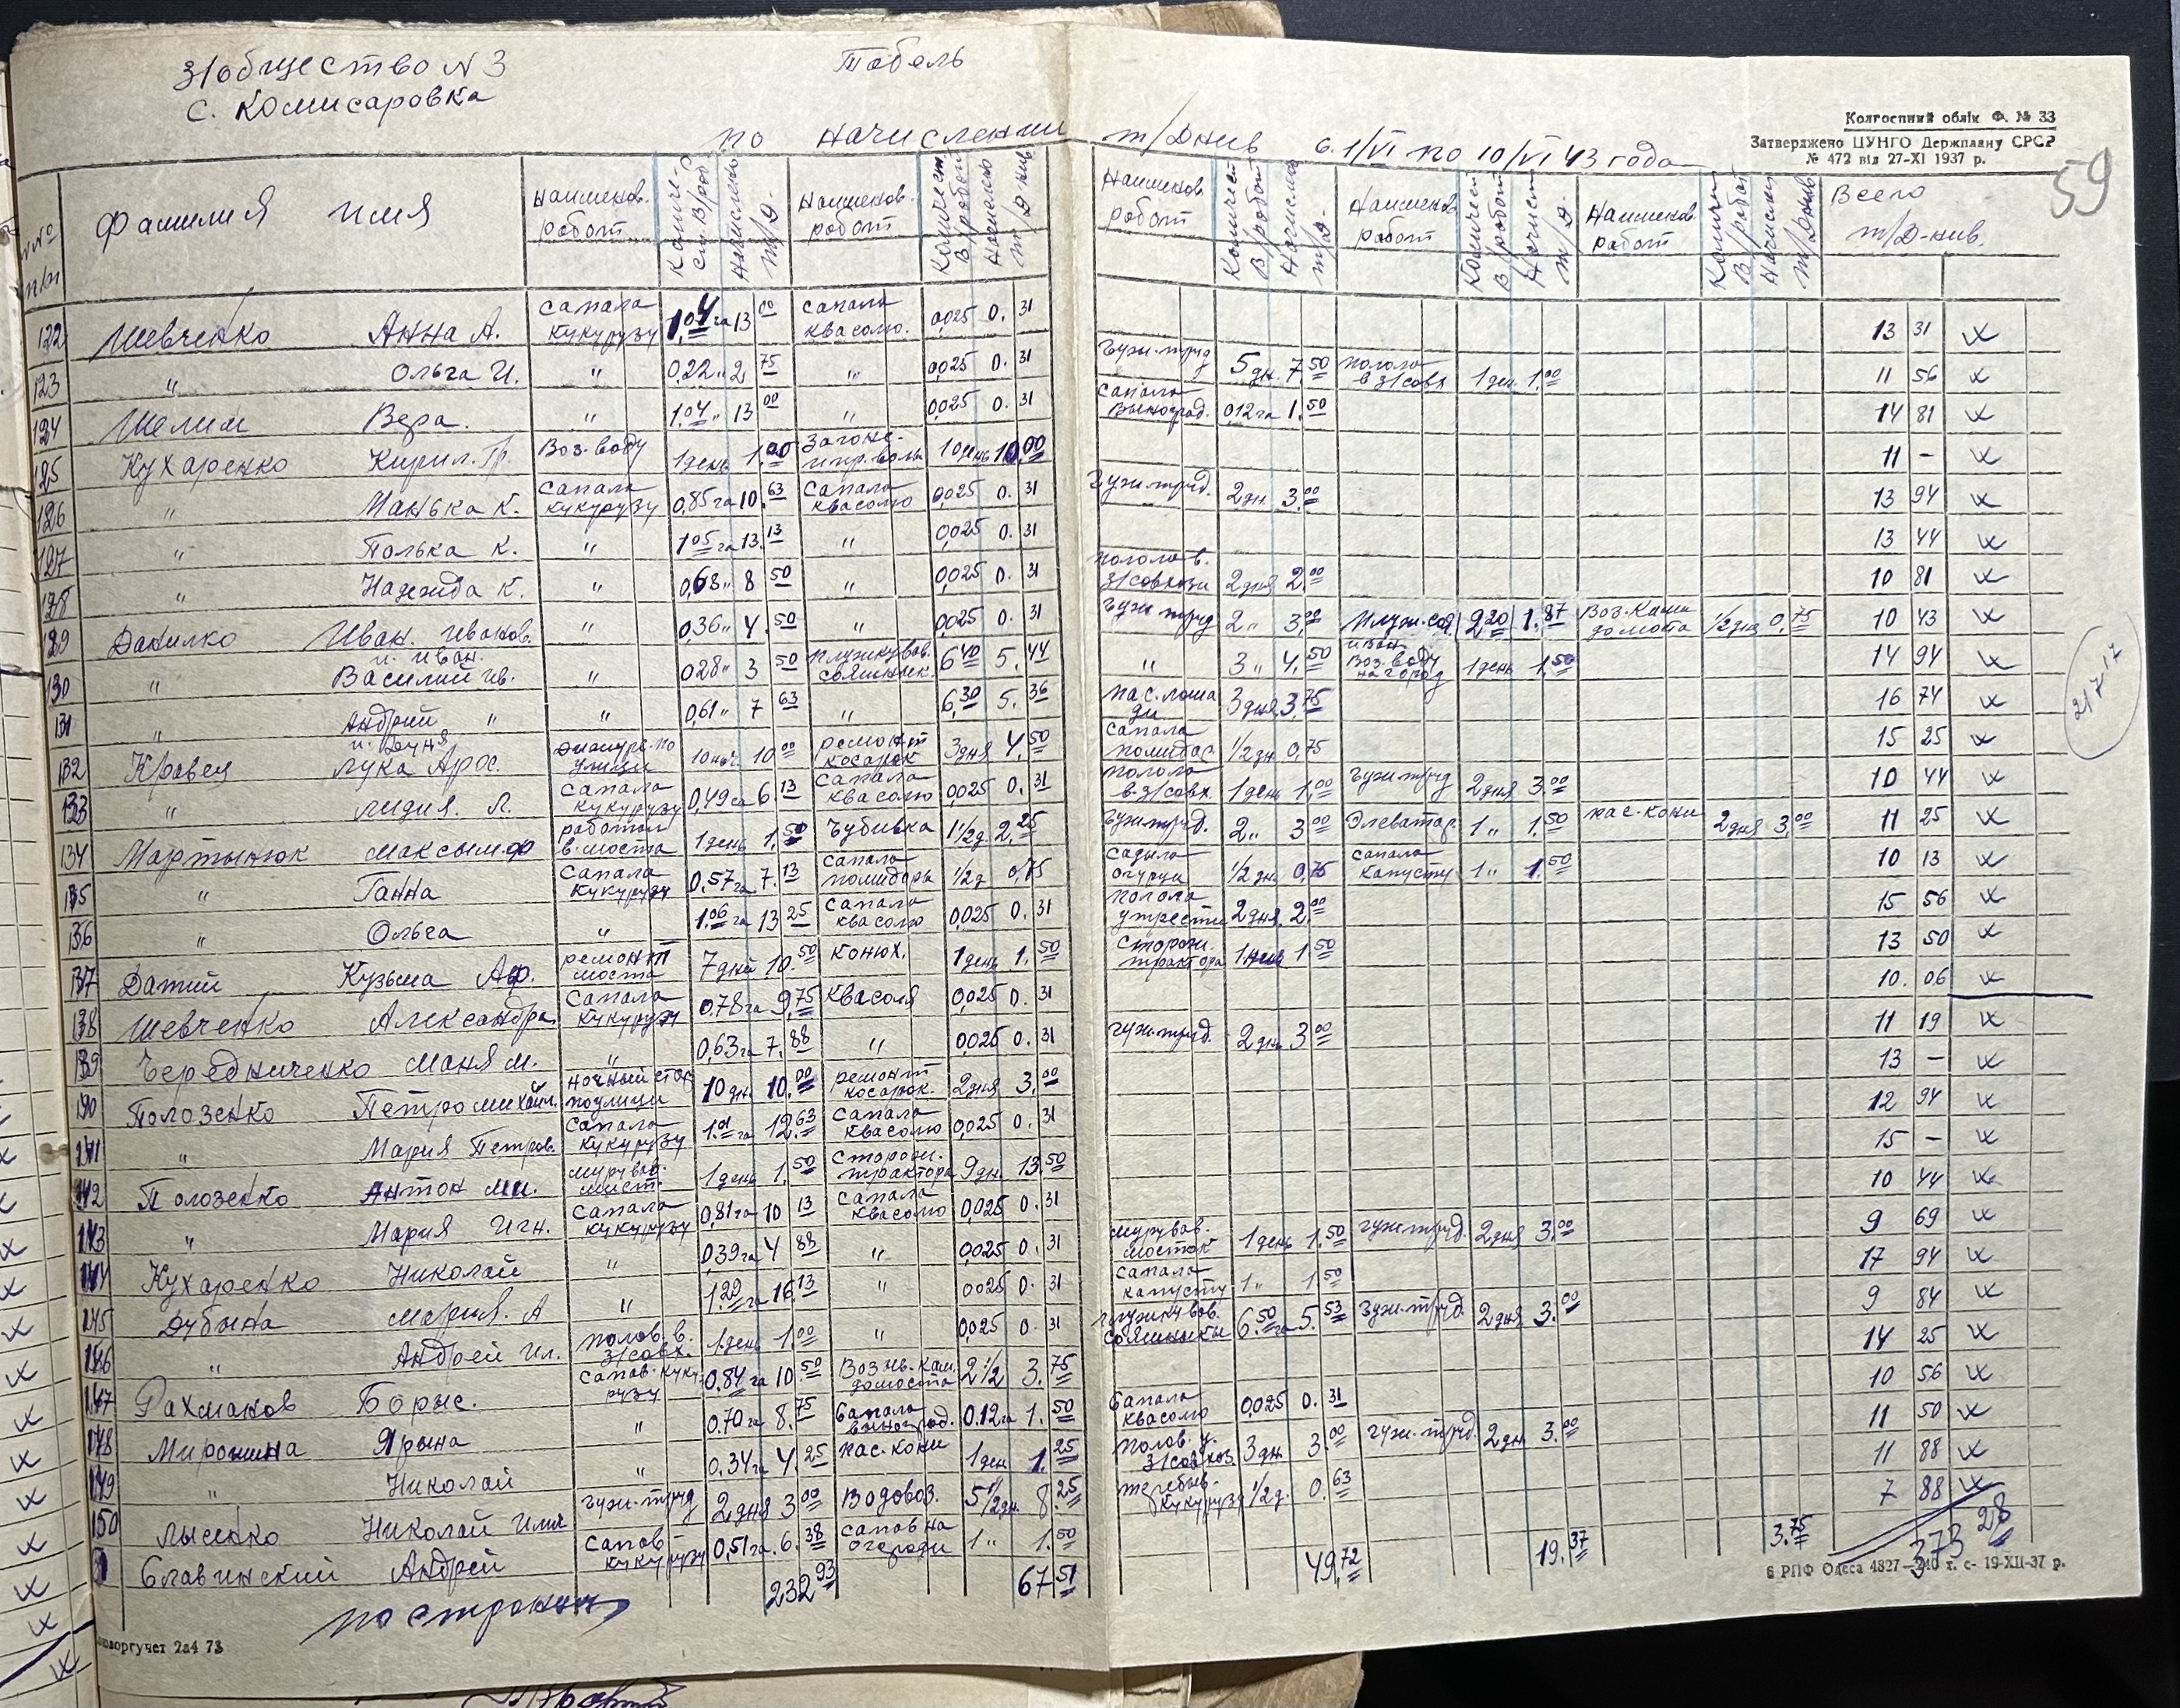 З/общество N 3
с. Комисаровка
Табель
по начислении т/Днив с 1/VI по 10/VI 43 года
Колгоспний облік Ф. № 33
Затверджено ЦУНГО Держплану СРСР
№ 472 від 27-XI 1937 р.
59
№№ п/п Фамилия имя Наименов. работ Начислено т/Д. Наименов. работ Количест. В/работ Начислено т/Днив Наименов. работ Количест В/работ Начислено т/Д. Наименов работ Количест В работ Начисл т/Д. Наименов работ Количест В/работ Начислен т/Днив Всего т/Д-нив.
122 Шевченко Анна А. сапала кукурузу 1,04 га 13 00 сапала квасолю. 0,025 0. 31 13 31
123 " Ольга И. " 0,22 " 2 75 " 0,025 0. 31 гуж.труд 5 дн. 7 50 полола в з/совх 1 ден 1.00 11 56
124 Шелим Вера. " 1.04 " 13 00 " 0,025 0. 31 сапала виноград. 0,12 га 1.50 14 81
125 Кухаренко Кирил. Гр. Воз. воду 1 день 1.00 10 день 10.00 11 -
126 " Манька К. сапала кукурузу 0,85 га 10. 63 сапала квасолю 0,025 0. 31 гуж.труд. 2 дн 3.00 13 94
127 " Полька К. " 1 05 га 13. 13 " 0,025 0. 31 13 44
128 " Надежда К. " 0,68 " 8 50 " 0,025 0. 31 полола в. з/совхози 2 дня 2.00 10 81
129 Данилко Иван. Иванов. " 0,36 " 4. 50 " 0,025 0. 31 гуж труд 2 " 3.00 2 20 1.87 Воз. Камн до моста 1/2 дня 0,75 10 43
130 " и. иван. Василий ив. " 0,28 " 3 50 плужкував. сояшник. 6 40 5. 44 " 3 " 4.50 Воз. воду на город 1 день 1.50 14 94
131 " Андрей " " 0,61 " 7 63 " 6,30 5. 36 пас. лошади 3 дня 3.75 16 74
132 Кравец Лука Арх. улици 10 ноч. 10 00 ремонт косарок 3 дня 4.50 сапала помидор 1/2 дн. 0,75 15 25
133 " Лидия. Л. сапала кукурузу 0,49 га 6. 13 сапала квасолю 0,025 0. 31 полола в з/совх. 1 день 1,00 гуж.труд 2 дня 3.00 10 44
134 Мартынюк Максым. Ф работал в. моста 1 день 1.50 Чубивка 1 1/2 д. 2.25 гуж.труд. 2 " 3 00 Элеватор. 1 " 1.50 пас. кони 2 дня 3,00 11 25
135 " Ганна сапала кукурузу 0.57 га 7. 13 сапала помидоры 1/2 д 0,75 садыла огурци 1/2 дн. 0,75 сапала капусту 1 " 1.50 10 13
136 " Ольга " 1.06 га 13 25 сапала квасолю 0,025 0. 31 полола 2 дня 2.00 15 56
137 Датий Кузьма Аф. ремонт моста 7 дней 10. 50 Конюх. 1 день 1. 50 сторож. трактора 1 день 1 50 13 50
138 Шевченко Александра сапала кукурузу 0.78 га 9,75 Квасоля 0,025 0. 31 10. 06
139 Чередниченко Маня М. " 0,63 га 7. 88 " 0,025 0. 31 гуж.труд. 2 дн 3 00 11 19
140 Полозенко Петро Михайл. ночный стор по улици 10 дн. 10. 00 ремонт косарок. 2 дня 3. 00 13 -
141 " Мария Петров. сапала кукурузу 1.01 га 12 63 сапала квасолю 0,025 0. 31 12 94
142 Полозенко Антон Ми. мурував. мост. 1 день 1. 50 сторож. трактора 9 дн. 13.50 15 -
143 " Мария Игн. сапала кукурузу 0,81 га 10 13 сапала квасолю 0,025 0. 31 10 44
144 Кухаренко Николай " 0,39 га 4 88 " 0,025 0. 31 мурував. мосток 1 день 1.50 гуж.труд. 2 дня 3.00 9 69
145 Дубына Мария. А " 1.29 га 16. 13 " 0025 0. 31 сапала капусту 1 " 1 50 17 94
146 " Андрей Ил. полов. в. з/совх. 1 день 1.00 " 0,025 0. 31 плужкував. сояшники 6.50 га 5. 53 гуж.труд. 2 дня 3.00 9 84
147 Рахманов Борис. сапав. кукурузу 0.84 га 10 50 Воз ив. кам. до моста 2 1/2 3. 75 14 25
148 Миронина Ярына " 0.70 га 8. 75 сапала виноград. 0.12 га 1. 50 сапала квасолю 0,025 0. 31 10 56
149 " Николай " 0.34 га 4. 25 пас. кони 1 ден 1. 25 полов. у. з/совхоз 3 дн. 3.00 гуж.труд. 2 дн 3.00 11 50
150 Лысенко Николай Илич гуж.труд 2 дня 3 00 Водовоз. 5 1/2 дн. 8. 25 теребыв. кукурузу 1/2 д. 0. 63 11 88
Славинский Андрей сапов кукурузу 0,51 га. 6. 38 сапов на огороди 1 " 1. 50 7 88
по странице 232 93 67 51 49,72 19.37 3.75 373 28
21717
6 РПФ Одеса 4827—240 т. с- 19-XII-37 р.
Союзоргучет 2а4 73